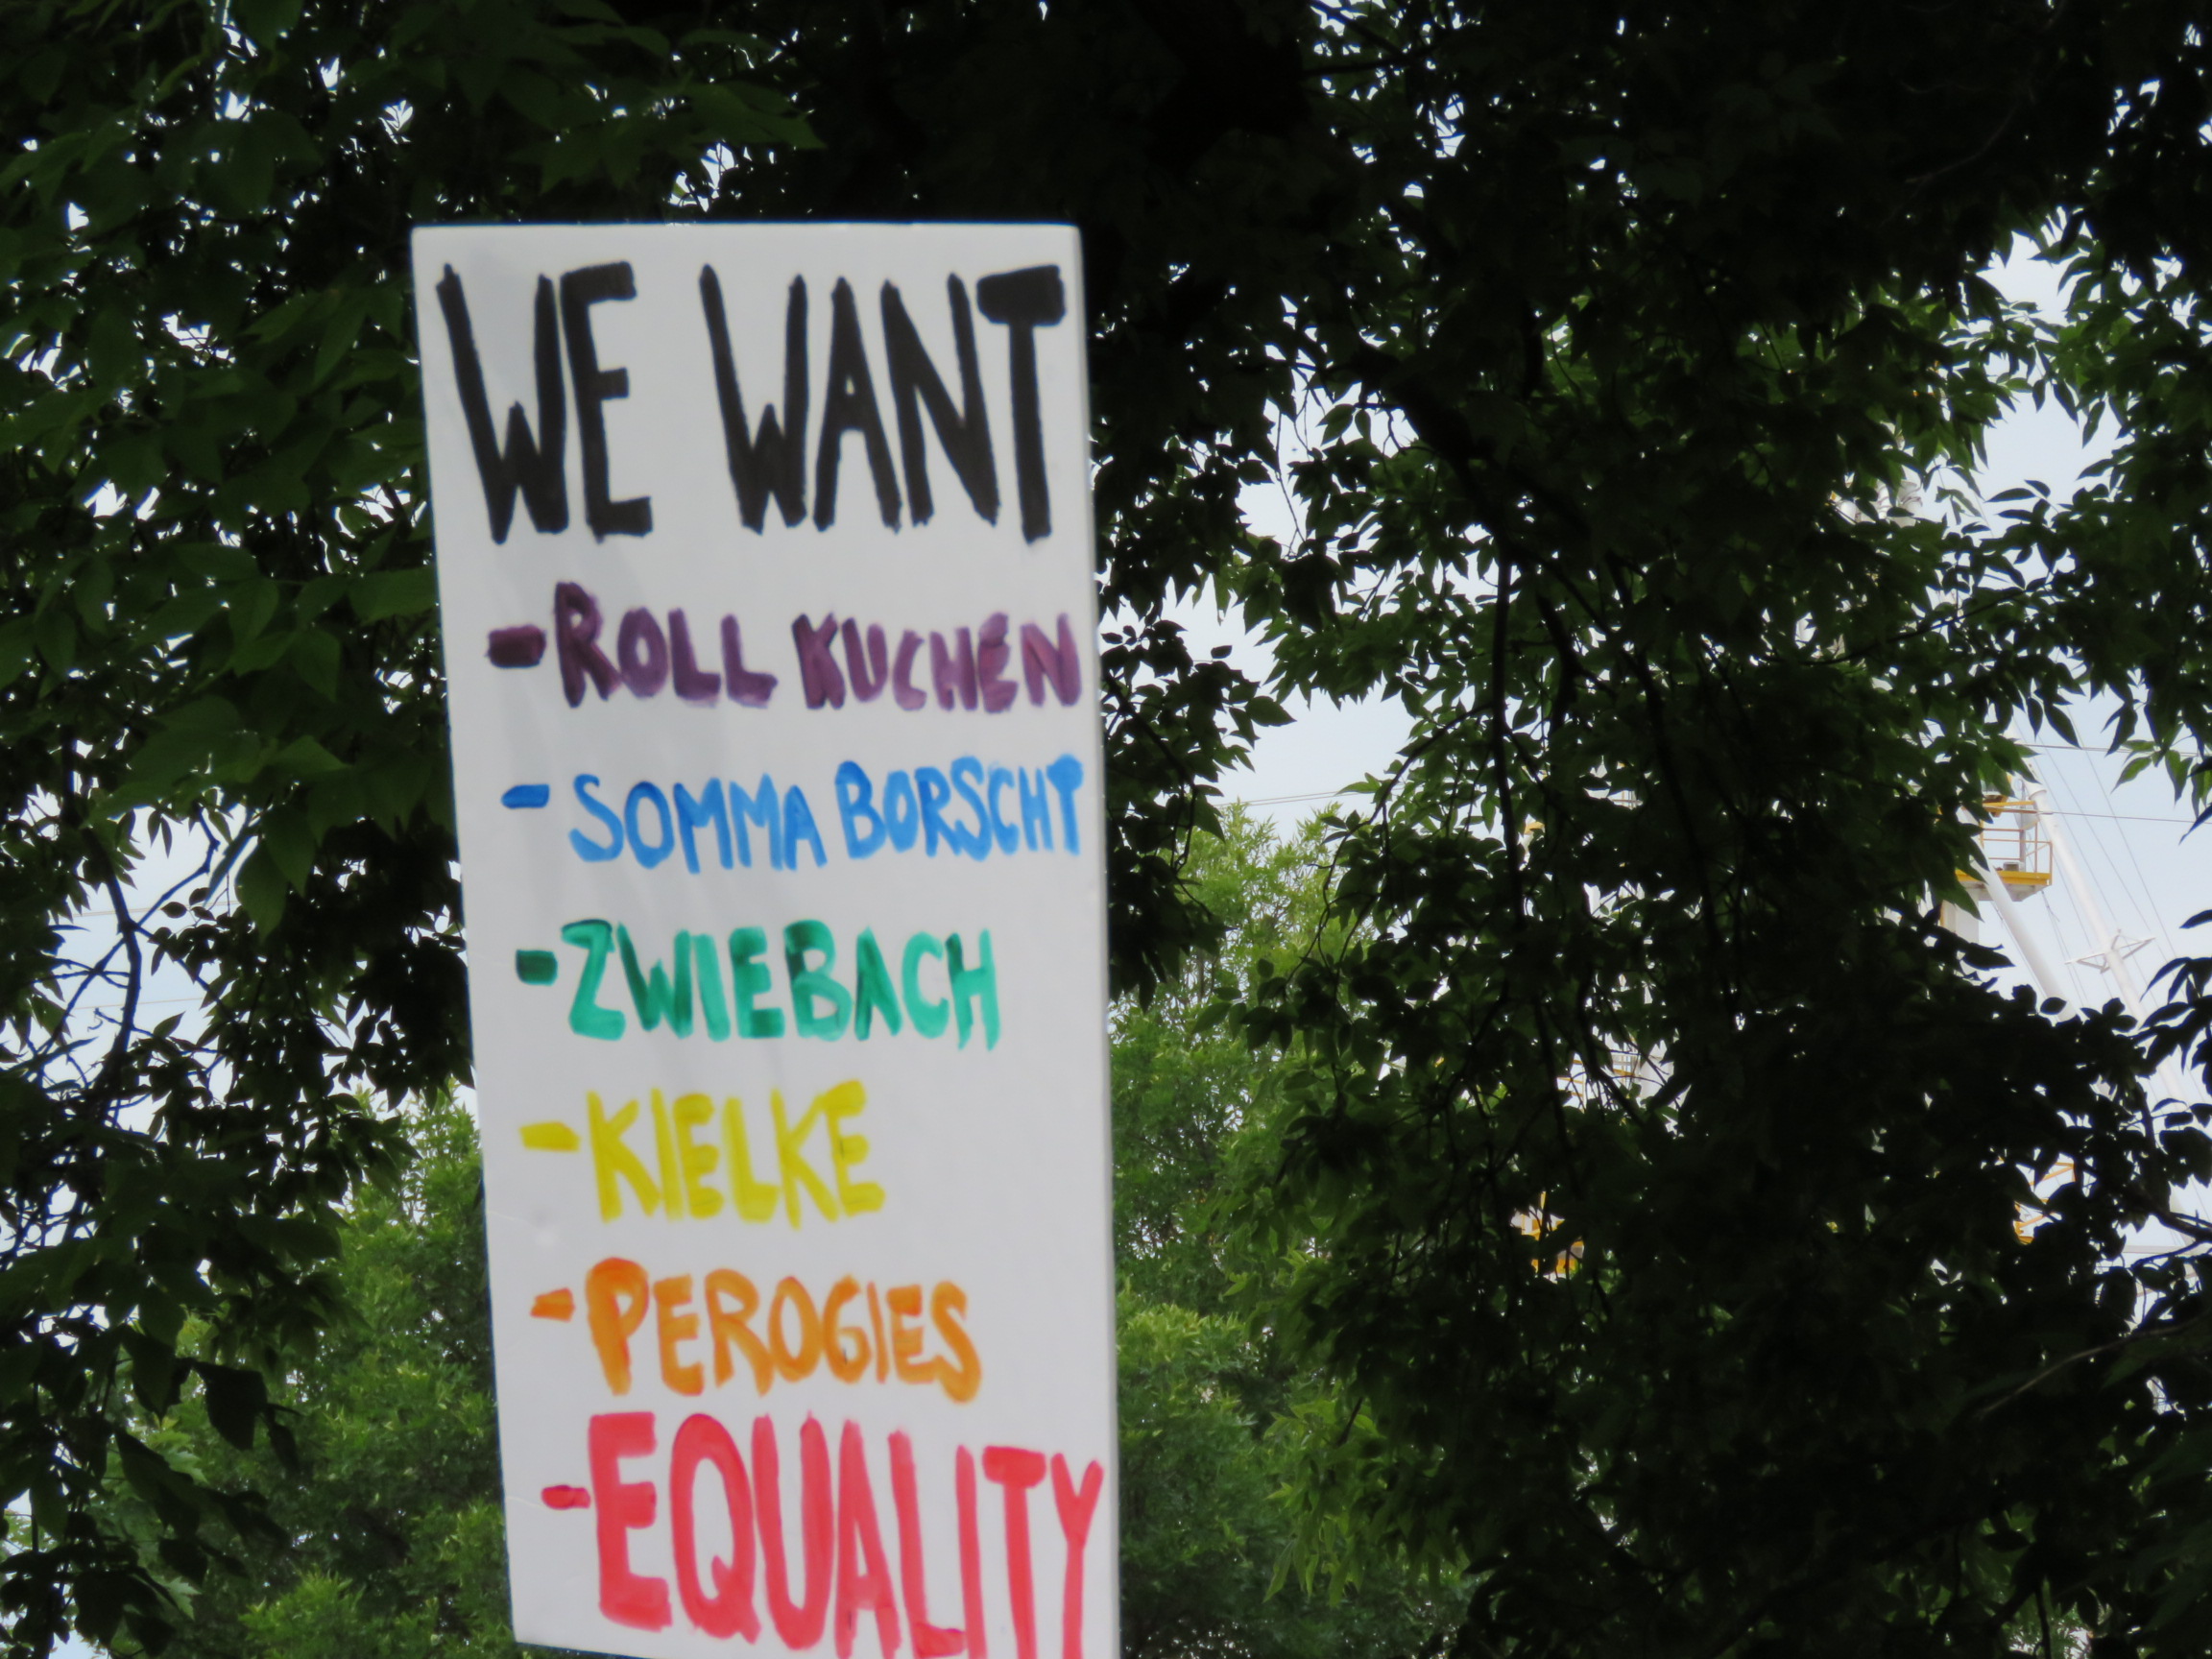 WE WANT
- ROLL KUCHEN
- SOMMA BORSCHT
- ZWIEBACH
- KIELKE
- PEROGIES
- EQUALITY